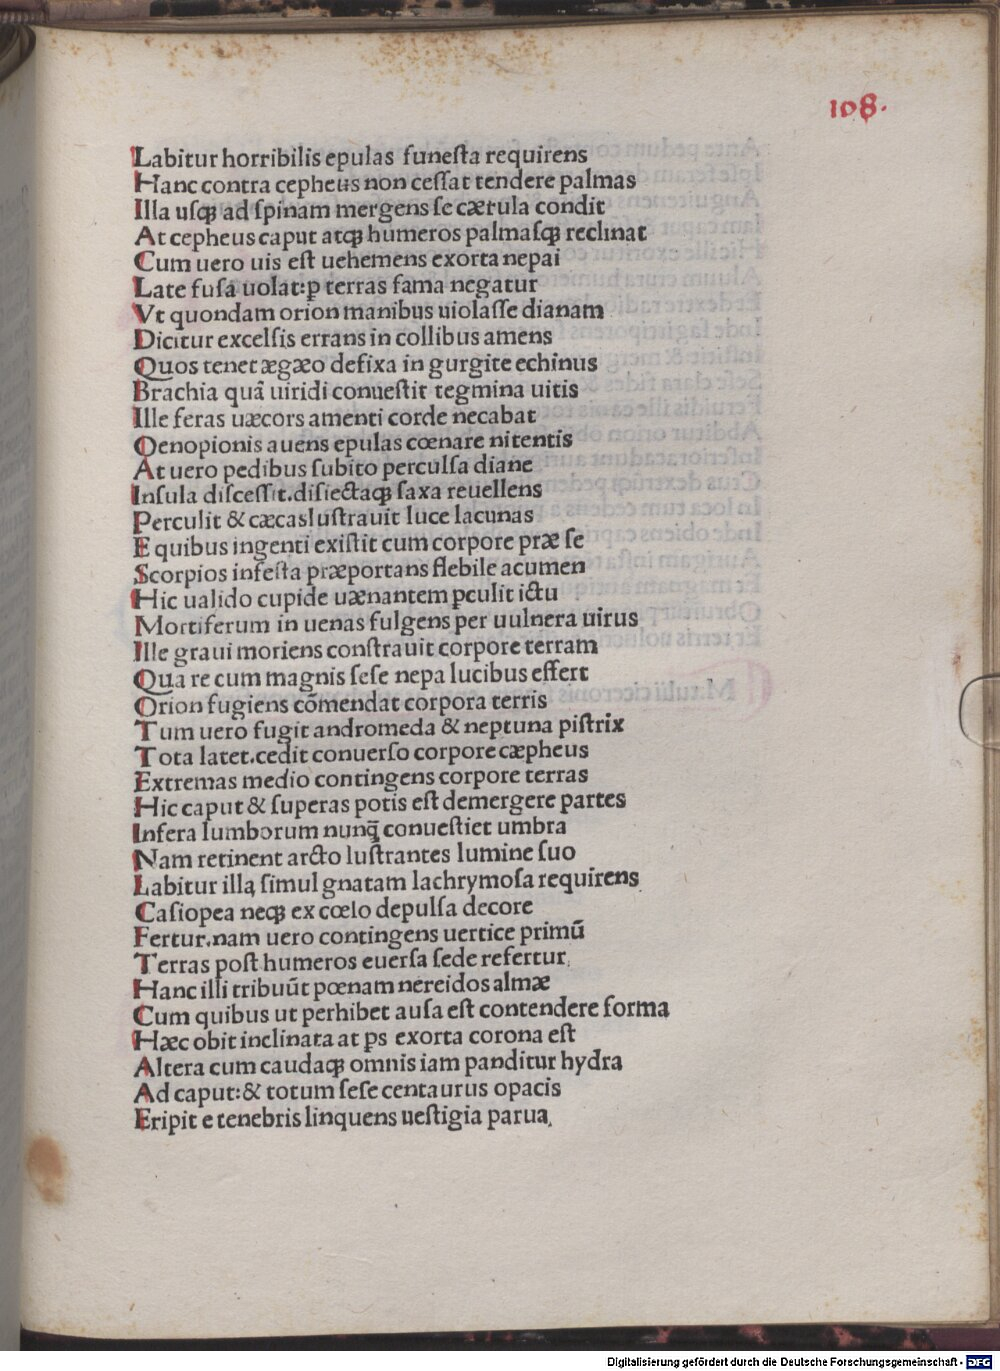 108.
Labitur horribilis epulas funesta requirens
Hanc contra cepheus non cessat tendere palmas
Illa usqꝫ ad spinam mergens se cærula condit
At cepheus caput atqꝫ humeros palmasqꝫ reclinat
Cum uero uis est uehemens exorta nepai
Late fusa uolat:ꝑ terras fama negatur
Vt quondam orion manibus uiolasse dianam
Dicitur excelsis errans in collibus amens
Quos tenet ægæo defixa in gurgite echinus
Brachia quã uiridi conuestit tegmina uitis
Ille feras uæcors amenti corde necabat
Oenopionis auens epulas cœnare nitentis
At uero pedibus subito perculsa diane
Insula discessit.disiectaqꝫ saxa reuellens
Perculit & cæcas lustrauit luce lacunas
E quibus ingenti existit cum corpore præ se
Scorpios infesta præportans flebile acumen
Hic ualido cupide uænantem ꝑculit ictu
Mortiferum in uenas fulgens per uulnera uirus
Ille graui moriens constrauit corpore terram
Qua re cum magnis sese nepa lucibus effert
Orion fugiens cõmendat corpora terris
Tum uero fugit andromeda & neptuna pistrix
Tota latet.cedit conuerso corpore cæpheus
Extremas medio contingens corpore terras
Hic caput & superas potis est demergere partes
Infera lumborum nunq̃ conuestiet umbra
Nam retinent arcto lustrantes lumine suo
Labitur illą simul gnatam lachrymosa requirens
Casiopea neqꝫ ex cœlo depulsa decore
Fertur.nam uero contingens uertice primũ
Terras post humeros euersa sede refertur.
Hanc illi tribuũt pœnam nereidos almæ
Cum quibus ut perhibet ausa est contendere forma
Hæc obit inclinata at ꝑs exorta corona est
Altera cum caudaqꝫ omnis iam panditur hydra
Ad caput:& totum sese centaurus opacis
Eripit e tenebris linquens uestigia parua.
Digitalisierung gefördert durch die Deutsche Forschungsgemeinschaft - DFG